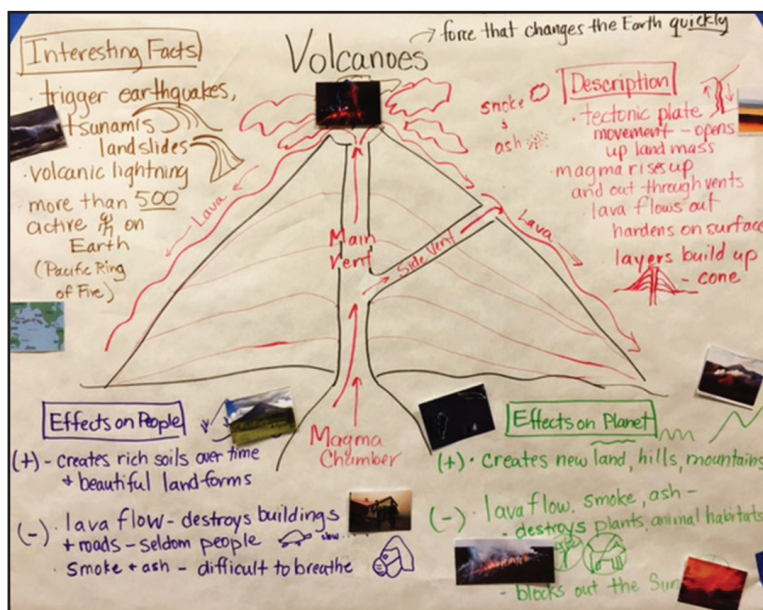 Volcanoes
force that changes the Earth quickly
Interesting Facts
· trigger earthquakes,
tsunamis
landslides
· volcanic lightning
more than 500
active on
Earth
(Pacific Ring
of Fire)
smoke
&
ash
Description
· tectonic plate
movement - opens
up land mass
· magma rises up
and out through vents
· lava flows out
hardens on surface
layers build up
- cone
Lava
Main
Vent
Side Vent
Lava
Magma
Chamber
Effects on People
(+) - creates rich soils over time
+ beautiful land forms
(-) · lava flow - destroys buildings
+ roads - seldom people
slow
· smoke + ash - difficult to breathe
Effects on Planet
(+) · creates new land, hills, mountains
(-) · lava flow, smoke, ash -
- destroys plants, animal habitats
- blocks out the Sun